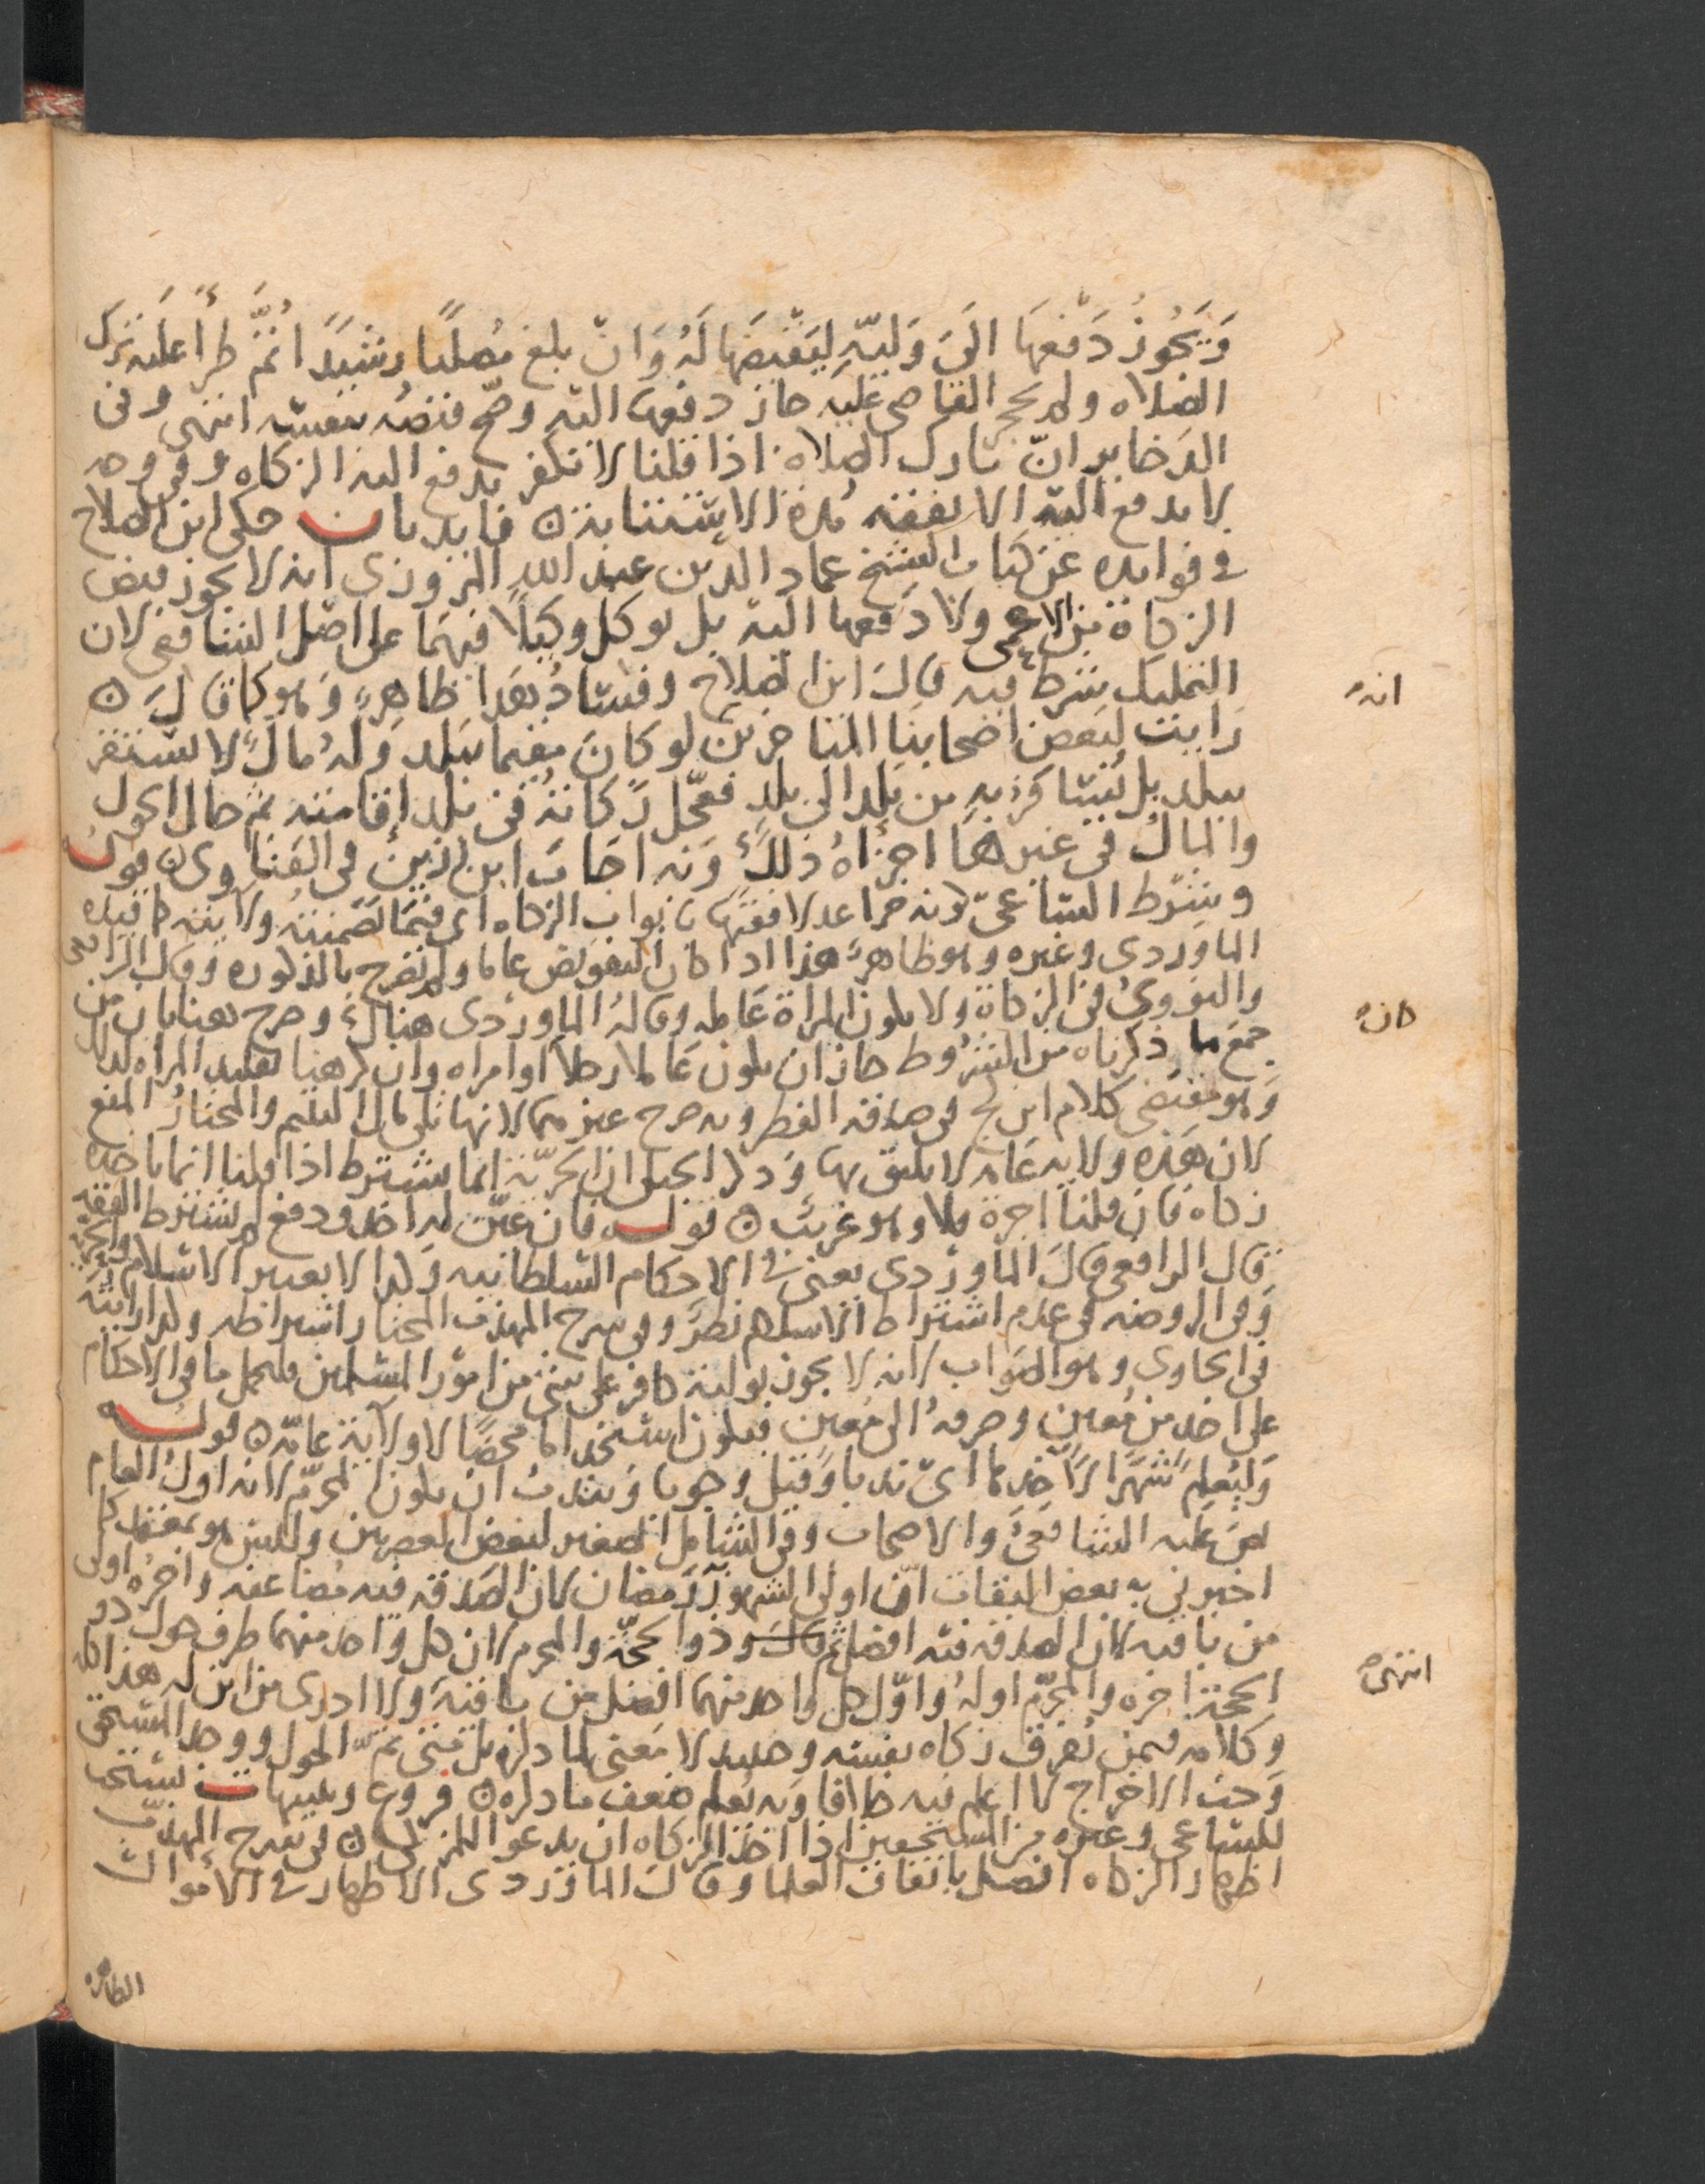 وَيَجُوزُ دَفعهَا الىَ وَليّهِ ليَقبضَهَا لَهُ وَانّ بلغ مُصَليًا رشيدًا ثمَّ طرأ عليه ترك
الصلاه ولم يحجر القاضى عليه جاز دفعها اليه وصح قبضه بنفسه انتهى وفى
الدخاير انّ تارك الصلاة اذا قلنا لا نكفر يدفع اليه الزكاه وفى وجه
لا يدفع اليه الا نفقته مُدة الاستتابة ن فايدتان حكى ابن الصلاح
فى فوايده عن كتاب الشيخ عماد الدين عبد الله المزوزى انه لا يجوز قبض
الزكاة من الاعمى ولا دفعها اليه بل يوكل وكيلاً فيهما على اصل الشافعى لان
التمليك شرط فيه قال ابن الصلاح وفساد هذا ظاهرٌ وَهو كما قال ن
رَايت لبعض اصحابنا المتاخرين لو كان مقيما ببلد وَلهُ مالٌ لا يستقر
ببلد بل يُسافر به من بلد الى بلد فعجّل زكاته فى بلد اقامته ثم حال الحول
والمال فى غيرها اجزاهُ ذلك وَبه اجاب ابن رزين فى الفتاوى ن قوله
وشرط الساعى كونه حرا عدلا فقيها بابواب الزكاه اى فيما تضمنته ولايته كما قيده
الماوردى وغيره وهو ظاهرٌ هذا اذا كان التفويض عاما ولم يصرح بالذكوره وَقال الرافعى
والنووىُ فى الزكاة ولا يكون المراة عَاملة وقالهُ الماوردى هناك وصرح هنا بان من
جمع ما ذكرناه من الشرُوط جاز ان يكون عَاملا رجلاً او امراه وان كرهنا تقليد المراه لذلك
وَهو مقتضى كلام ابن كج فى صدقه الفطر وبه صرح غيرهما لانها تلى مال اليتيم والمختارُ المنع
لان هَذه ولايه عَامه لا يليق بها وَذكر الجيلى ان الحرّية انما تشترط اذا قلنا انما ياخذه
زكاه فان قلنا اجرة فلا وهو غريبٌ ن قوله فان عيّن له اخذ ودفع لم يشترط الفقه
قال الرافعى قال الماوردى يعنى فى الاحكام السلطانيه وَكذا لا يعتبر الاسلام والحرّية
وَفى الروضه فى عدم اشتراط الاسلام نظرٌ وفى شرح المهذب المختار اشتراطه وكذا رايته
فى الحاوى وهو الصَواب لانه لا يجوز تولية كافر على شىء من امور المسلمين فليحمل ما فى الاحكام
على اخذ من مُعين وصرفهُ الى مُعين فيكون استخداما محضًا لا ولاية عامّة ن قوله
وَليُعلِم شهرًا لاَخذها اىّ ندبا وَقيل وجوبا وَيندبُ ان يكون المحرّم لانه اول العام
نصَ عليه الشافعىُ والاصحاب وفى الشامل الصغير لبعض العصريين وللسن هو بمعتمد كل
اخبرنى به بعض الثقات انّ اولى الشهور رَمضان لان الصَدقه فيه مُضاعفه واخرُه اولى
من باقيه لان الصدقه فيه افضل ثم قال وذو الحجّة والمحرم لان كل واحد منهما طرف حول ذو
الحجة اخره والمحرّم اولهُ واوّل كل واحد منهما افضل من باقيه ولا ادرى من اين له هذا كله
وكلامه فيمن يُفرق زكاه بنفسه وحينيد لا مَعنى لما ذكره بل متى تمَّ الحول ووجد المستحق
وَجبَ الاخراج لا اعلم فيه خلافا وَبه يُعلم ضعف ما ذكره ن فروع وتنبيهات يستحب
للساعى وغيره من المستحقين اذا اخذ الزكاه ان يدعو للمزكى ن فى شرح المهذّب
اظهار الزكاه افضل باتفاق العلما وقال الماوردى الاظهار فى الاموال
الظاهره
انه
كان
انتهى